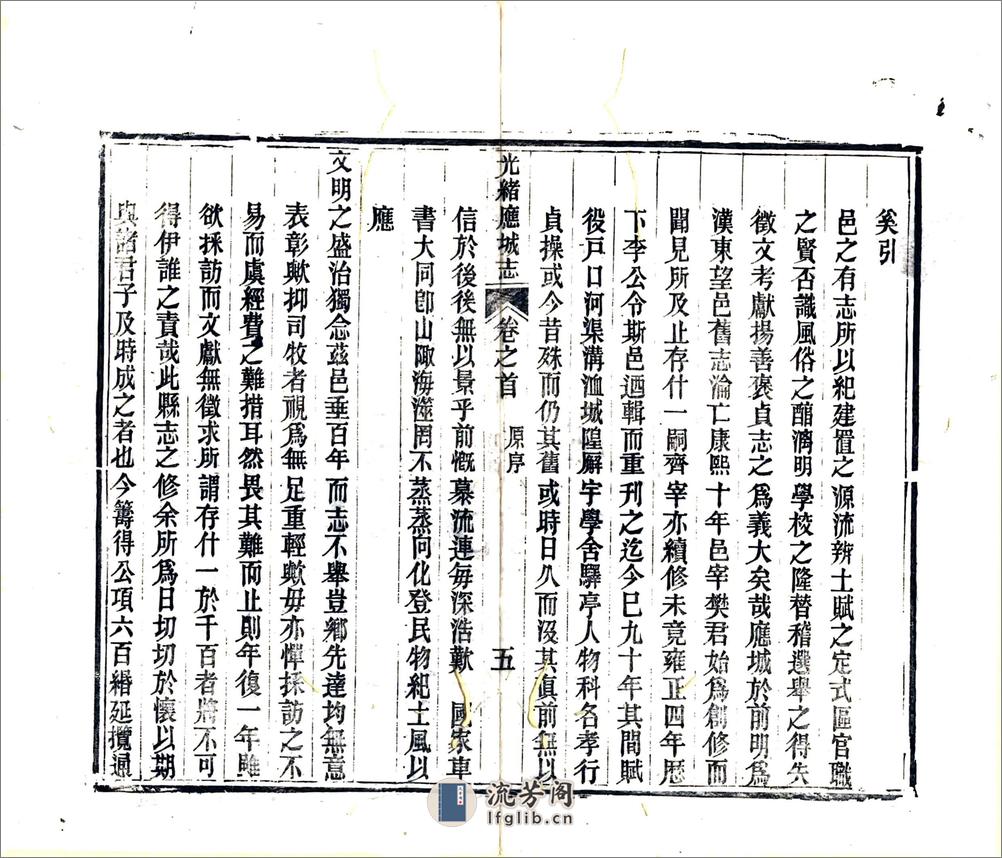 奚引
邑之有志所以紀建置之源流辨土賦之定式區官職
之賢否識風俗之醕漓明學校之隆替稽選舉之得失
徵文考獻揚善褒貞志之爲義大矣哉應城於前明爲
漢東望邑舊志淪亡康熙十年邑宰樊君始爲創修而
聞見所及止存什一嗣齊宰亦續修未竟雍正四年歷
下李公令斯邑迺輯而重刊之迄今已九十年其間賦
役戸口河渠溝洫城隍廨宇學舍驛亭人物科名孝行
貞操或今昔殊而仍其舊或時日久而沒其眞前無以
光緒應城志
卷之首
原序
五
信於後後無以景乎前慨慕流連毎深浩歎 國家車
書大同卽山陬海澨罔不蒸蒸向化登民物紀土風以
應
文明之盛治獨念茲邑垂百年而志不舉豈鄉先達均無意
表彰歟抑司牧者視爲無足重輕歟毋亦憚採訪之不
易而虞經費之難措耳然畏其難而止則年復一年雖
欲採訪而文獻無徵求所謂存什一於千百者將不可
得伊誰之責哉此縣志之修余所爲日切切於懷以期
與諸君子及時成之者也今籌得公項六百緡延攬通
流芳阁
lfglib.cn